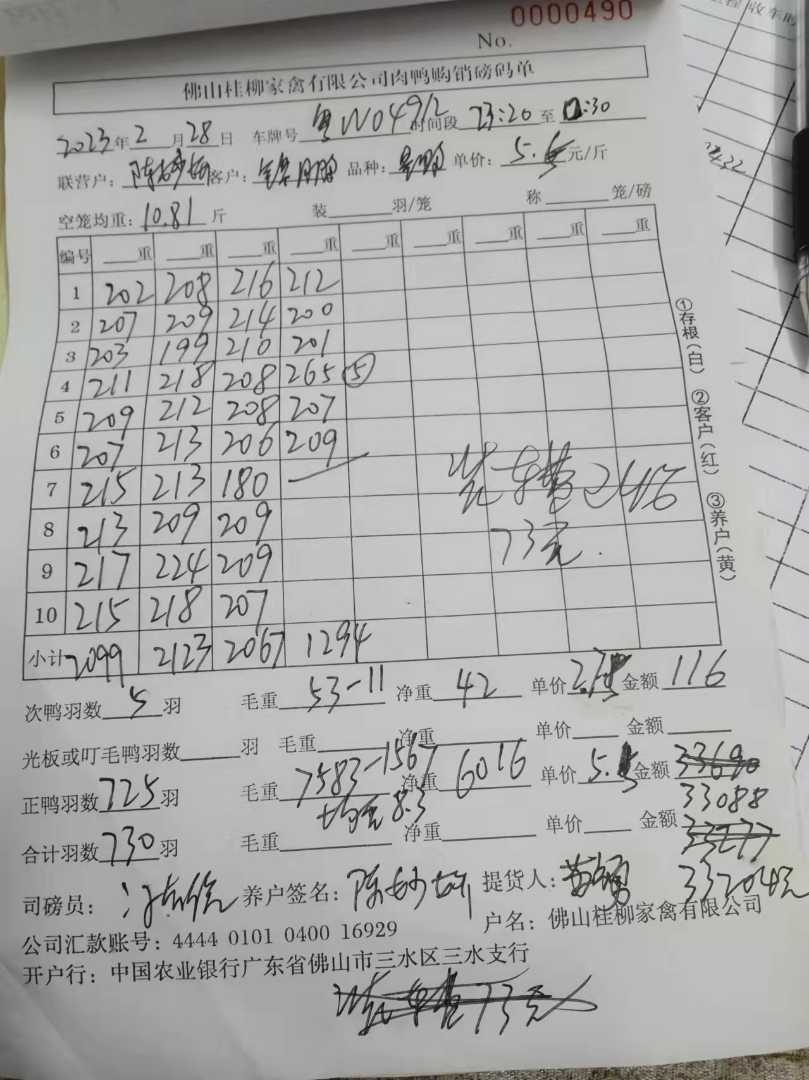 0000490
No.
佛山桂柳家禽有限公司肉鸭购销磅码单
2023年2月28日 车牌号 粤W04912 时间段 23:20至0:30
联营户：陈 客户： 品种： 单价：5.5元/斤
空笼均重：10.81斤 装 羽/笼 称 笼/磅
编号 重 重 重 重 重 重 重 重 重
1 202 208 216 212
2 207 209 214 200
3 203 199 210 201
4 211 218 208 265 ⑤
5 209 212 208 207
6 207 213 206 209
7 215 213 180
8 213 209 209
9 217 224 209
10 215 218 207
小计 2099 2123 2067 1294
装车费
73元.
①存根(白) ②客户(红) ③养户(黄)
次鸭羽数5羽 毛重53-11 净重42 单价 金额116
光板或叮毛鸭羽数 羽 毛重 净重 单价 金额
正鸭羽数725羽 毛重7583-1567 净重6016 单价5.5 金额33690
均重8.3 33088
合计羽数730羽 毛重 净重 单价 金额33277
33204元
司磅员： 养户签名：陈妙 提货人：
公司汇款账号：4444 0101 0400 16929 户名：佛山桂柳家禽有限公司
开户行：中国农业银行广东省佛山市三水区三水支行
装车费73元
收车时